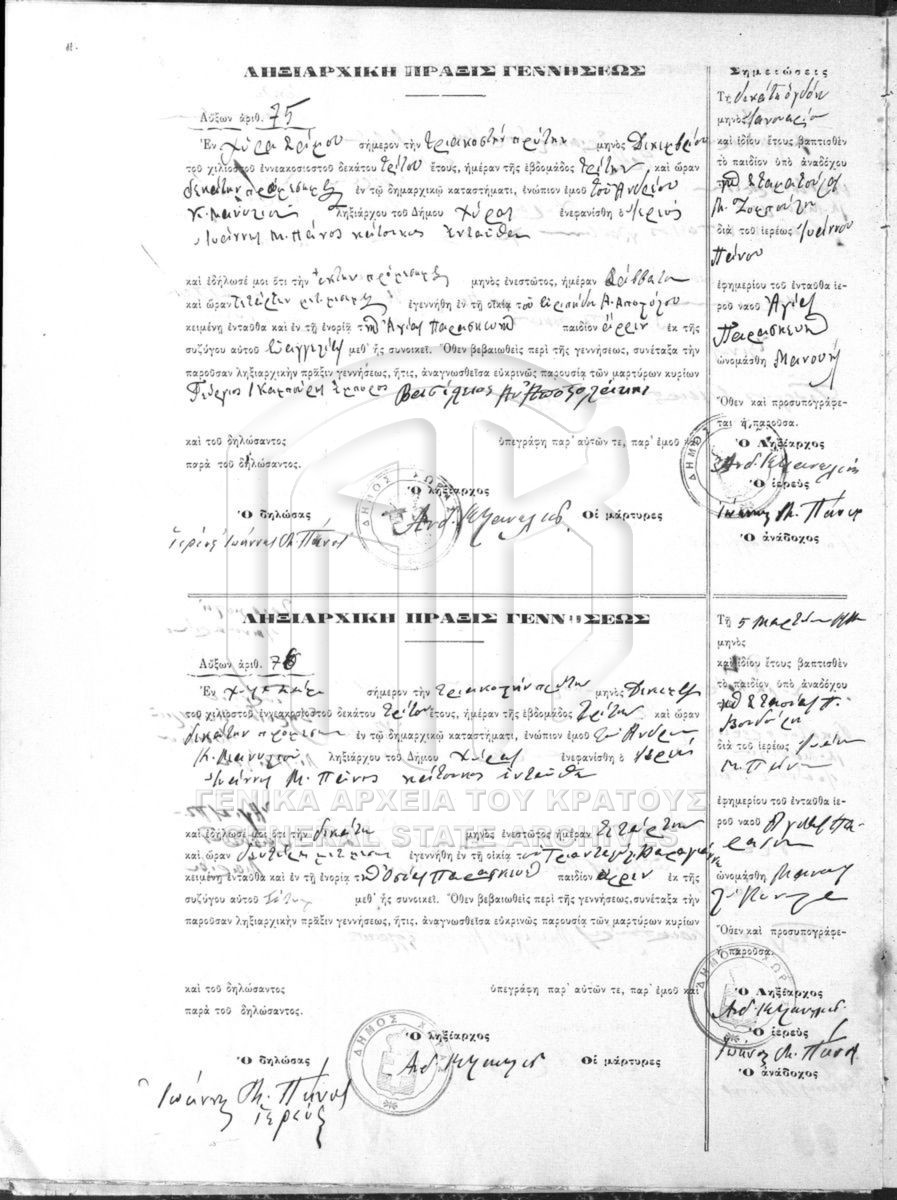 ΛΗΞΙΑΡΧΙΚΗ ΠΡΑΞΙΣ ΓΕΝΝΗΣΕΩΣ
Αὔξων ἀριθ. 75
Ἐν σήμερον τὴν τριακοστὴν πρώτην μηνὸς Δεκεμβρίου
τοῦ χιλιοστοῦ ἐννεακοσιοστοῦ δεκάτου τρίτου ἔτους, ἡμέραν τῆς ἑβδομάδος τρίτην καὶ ὥραν
δεκάτην ἐν τῷ δημαρχικῷ καταστήματι, ἐνώπιον ἐμοῦ τοῦ Ἀνδρέου
Κ. ληξιάρχου τοῦ Δήμου Χώρας ἐνεφανίσθη ὁ ἱερεὺς
Ἰωάννης Μ. Πάνος κάτοικος ἐνταῦθα
καὶ ἐδήλωσέ μοι ὅτι τὴν ἕκτην μηνὸς ἐνεστῶτος, ἡμέραν Σάββατον
καὶ ὥραν τετάρτην ἐγεννήθη ἐν τῇ οἰκίᾳ του
κειμένῃ ἐνταῦθα καὶ ἐν τῇ ἐνορίᾳ τῆς Ἁγίας Παρασκευῆς παιδίον ἄρρεν ἐκ τῆς
συζύγου αὐτοῦ Εὐαγγελίας μεθ' ἧς συνοικεῖ. Ὅθεν βεβαιωθεὶς περὶ τῆς γεννήσεως, συνέταξα τὴν
παροῦσαν ληξιαρχικὴν πρᾶξιν γεννήσεως, ἥτις, ἀναγνωσθεῖσα εὐκρινῶς παρουσίᾳ τῶν μαρτύρων κυρίων
Γεώργιος Βασίλειος
καὶ τοῦ δηλώσαντος ὑπεγράφη παρ' αὐτῶν τε, παρ' ἐμοῦ καὶ
παρὰ τοῦ δηλώσαντος.
Ὁ ληξίαρχος
Ὁ δηλώσας Οἱ μάρτυρες
ἱερεὺς Ἰωάννης Μ. Πάνος
ΔΗΜΟΣ ΧΩΡΑΣ
Σημειώσεις
Τῇ δεκάτῃ ὀγδόῃ
μηνὸς Ἰανουαρίου
καὶ ἰδίου ἔτους βαπτισθὲν
τὸ παιδίον ὑπὸ ἀναδόχου
διὰ τοῦ ἱερέως Ἰωάννου
Πάνου
ἐφημερίου τοῦ ἐνταῦθα ἱε-
ροῦ ναοῦ Ἁγίας
Παρασκευῆς
ὠνομάσθη Μανουήλ
Ὅθεν καὶ προσυπογράφε-
ται ἡ παροῦσα.
Ὁ Ληξίαρχος
Ὁ ἱερεὺς
Ἰωάννης Μ. Πάνος
Ὁ ἀνάδοχος
ΔΗΜΟΣ ΧΩΡΑΣ
ΛΗΞΙΑΡΧΙΚΗ ΠΡΑΞΙΣ ΓΕΝΝΗΣΕΩΣ
Αὔξων ἀριθ. 76
Ἐν σήμερον τὴν τριακοστὴν πρώτην μηνὸς Δεκεμβρ
τοῦ χιλιοστοῦ ἐννεακοσιοστοῦ δεκάτου τρίτου ἔτους, ἡμέραν τῆς ἑβδομάδος τρίτην καὶ ὥραν
δεκάτην ἐν τῷ δημαρχικῷ καταστήματι, ἐνώπιον ἐμοῦ τοῦ Ἀνδρέου
Κ. ληξιάρχου τοῦ Δήμου Χώρας ἐνεφανίσθη ὁ ἱερεὺς
Ἰωάννης Μ. Πάνος κάτοικος ἐνταῦθα
ΓΕΝΙΚΑ ΑΡΧΕΙΑ ΤΟΥ ΚΡΑΤΟΥΣ
GENERAL STATE ARCHIVES
καὶ ἐδήλωσέ μοι ὅτι τὴν δεκάτην μηνὸς ἐνεστῶτος ἡμέραν Τετάρτην
καὶ ὥραν δευτέραν ἐγεννήθη ἐν τῇ οἰκίᾳ του
κειμένῃ ἐνταῦθα καὶ ἐν τῇ ἐνορίᾳ τῆς Ὁσίας Παρασκευῆς παιδίον ἄρρεν ἐκ τῆς
συζύγου αὐτοῦ μεθ' ἧς συνοικεῖ. Ὅθεν βεβαιωθεὶς περὶ τῆς γεννήσεως, συνέταξα τὴν
παροῦσαν ληξιαρχικὴν πρᾶξιν γεννήσεως, ἥτις, ἀναγνωσθεῖσα εὐκρινῶς παρουσίᾳ τῶν μαρτύρων κυρίων
καὶ τοῦ δηλώσαντος ὑπεγράφη παρ' αὐτῶν τε, παρ' ἐμοῦ καὶ
παρὰ τοῦ δηλώσαντος.
Ὁ ληξίαρχος
Ὁ δηλώσας Οἱ μάρτυρες
Ἰωάννης Μ. Πάνος
ἱερεὺς
ΔΗΜΟΣ
Τῇ 5 Μαρτίου
μηνὸς
καὶ ἰδίου ἔτους βαπτισθὲν
τὸ παιδίον ὑπὸ ἀναδόχου
διὰ τοῦ ἱερέως
Μ. Πάνου
ἐφημερίου τοῦ ἐνταῦθα ἱε-
ροῦ ναοῦ
ὠνομάσθη
Ὅθεν καὶ προσυπογράφε-
ἡ παροῦσα.
Ὁ Ληξίαρχος
Ὁ ἱερεὺς
Ἰωάννης Μ. Πάνος
Ὁ ἀνάδοχος
ΔΗΜΟΣ ΧΩΡΑΣ